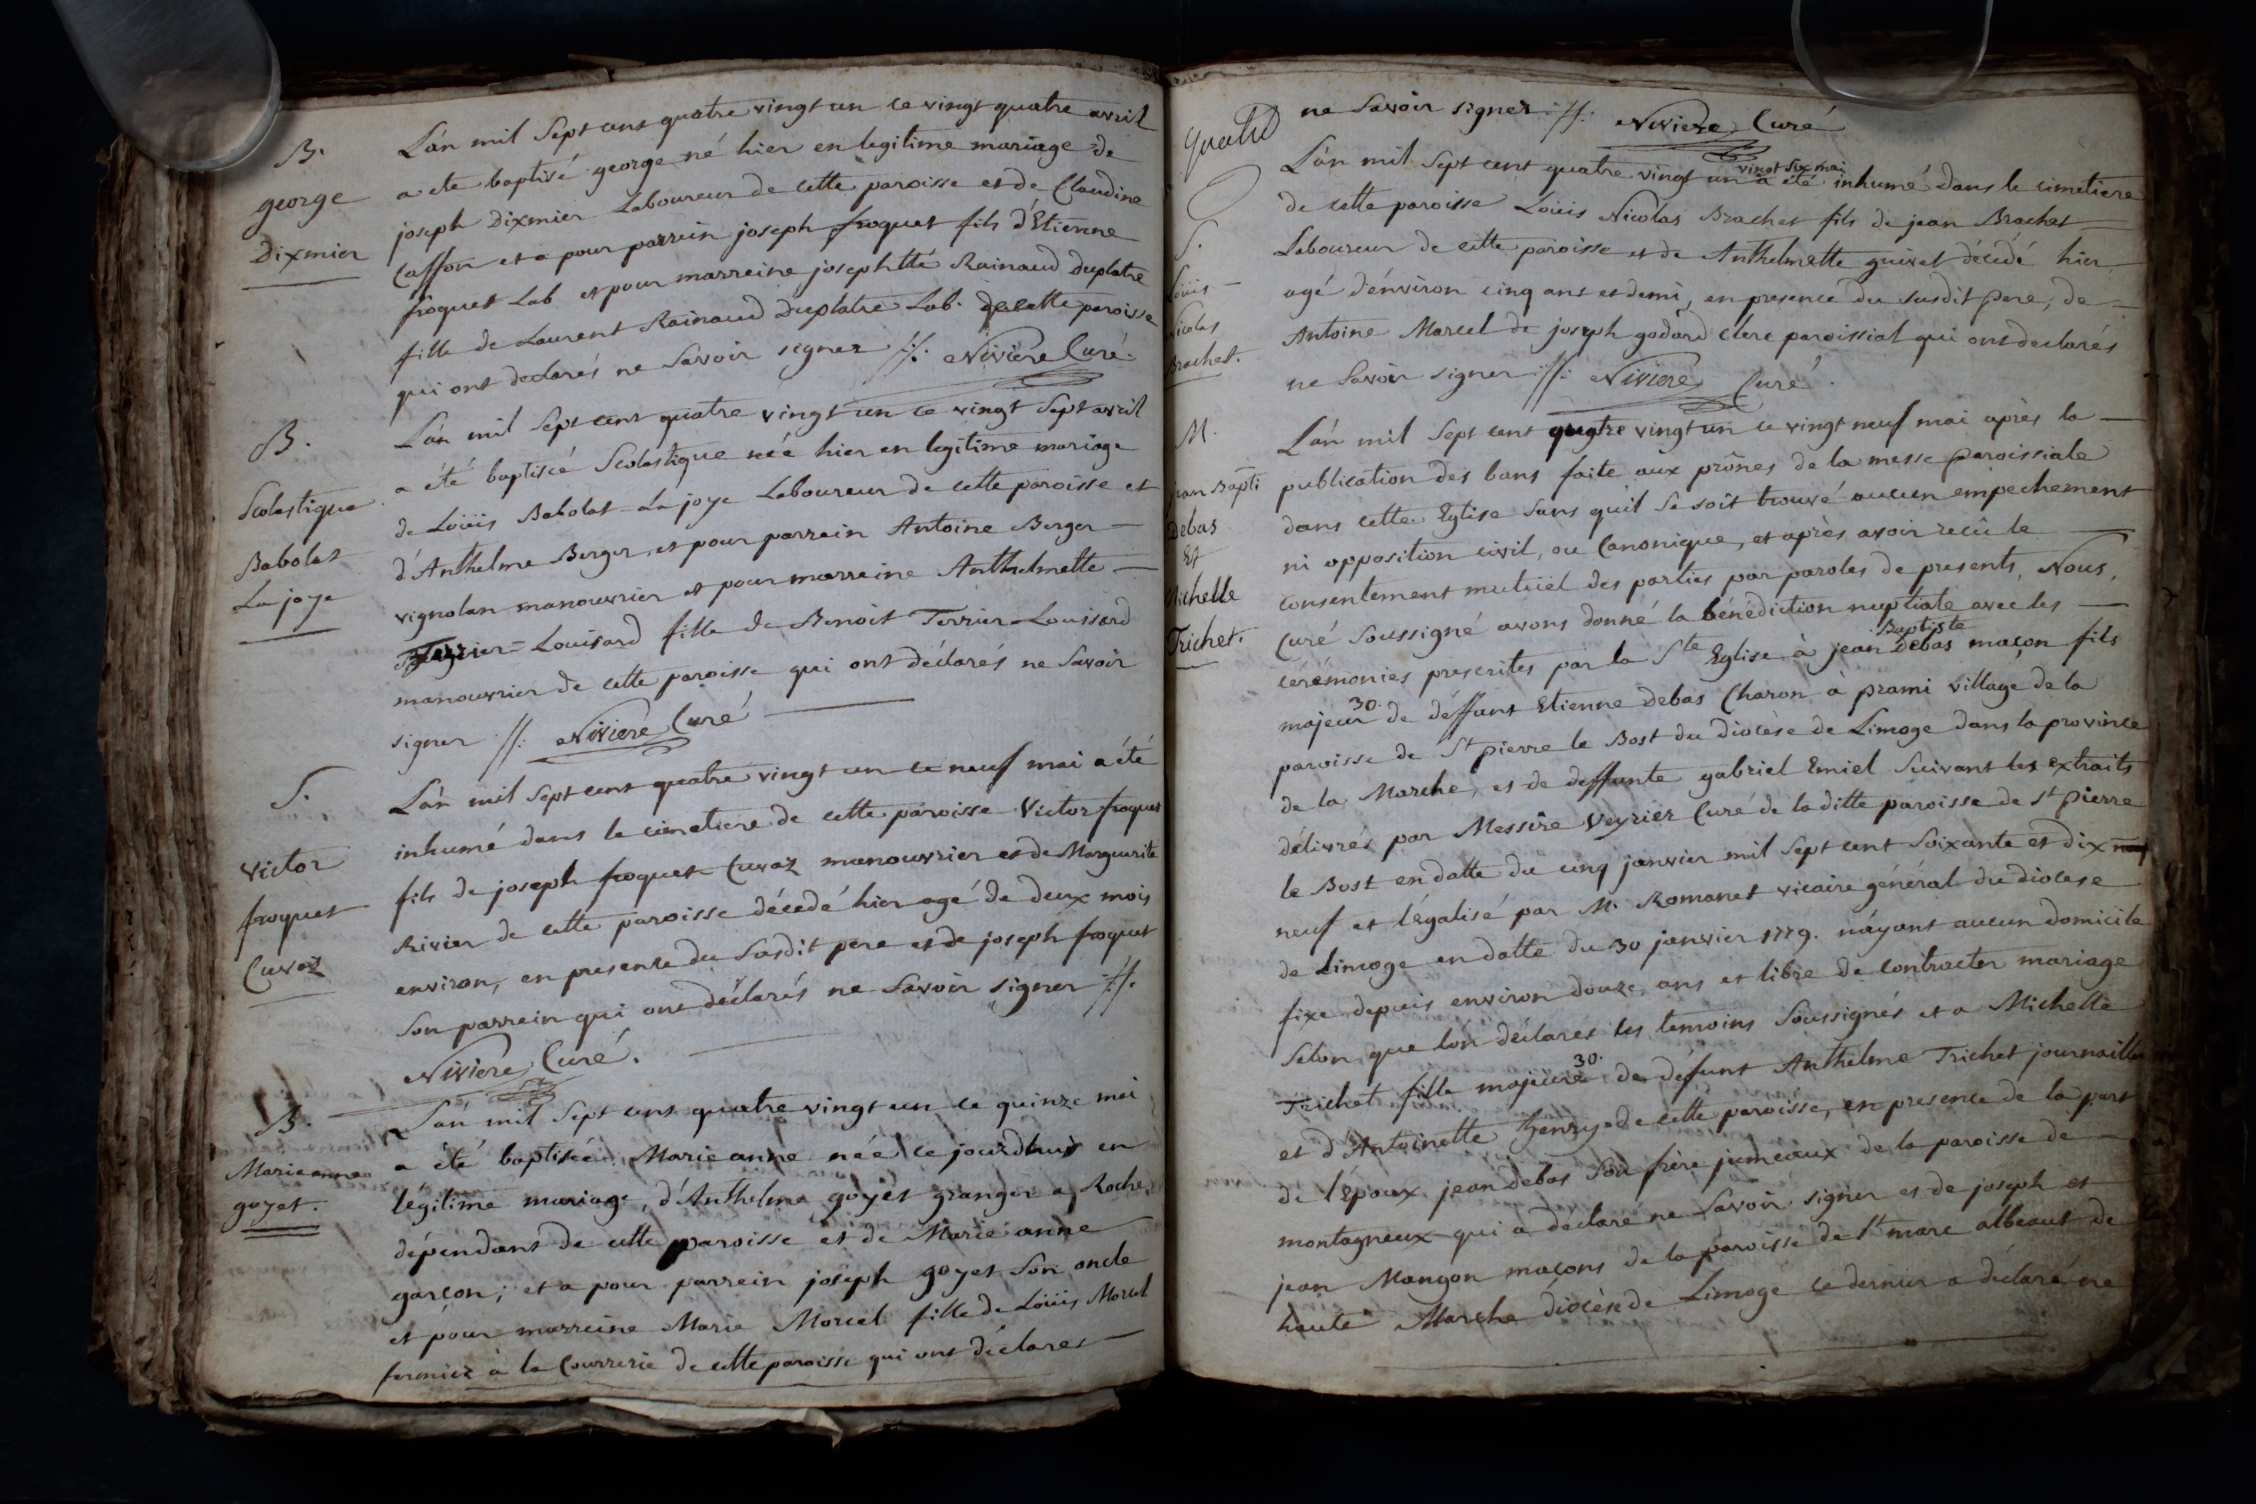 B.
george
Dixmier
L'an mil Sept cent quatre vingt un ce vingt quatre avril
a ete baptisé george né hier en legitime mariage de
joseph Dixmier Laboureur de cette paroisse et de Claudine
Caffon et a pour parrein joseph froquet fils d'Etienne
froquet Lab. et pour marreine josephtté Rainaud duplatre
fille de Laurent Rainaud duplatre Lab. de cette paroisse
qui ont declarés ne Savoir signer ·//· Niviere Curé.
B.
Scolastique
Babolat
La joye
L'an mil Sept cent quatre vingt un ce vingt Sept avril
a été baptiséé Scolastique néé hier en legitime mariage
de Loüis Babolat La joye Laboureur de cette paroisse et
d'Anthelme Berger, et pour parrein Antoine Berger
vignolan manouvrier et pour marreine Anthelmette
Terrier = Louisard fille de Benoit Terrier Louisard
manouvrier de cette paroisse qui ont déclarés ne Savoir
signer ·//· Niviere Curé
S.
Victor
froquet
Cuvaz
L'an mil Sept cent quatre vingt un ce neuf mai a été
inhumé dans le cimetiere de cette paroisse Victor froquet
fils de joseph froquet Cuvaz manouvrier et de Marguerite
Rivier de cette paroisse décedé hier agé de deux mois
environ, en presence du Susdit pere et de joseph froquet
Son parrein qui ont déclarés ne Savoir signer ·//·
Niviere Curé.
B.
Marie anne
goyet.
L'an mil Sept cent quatre vingt un ce quinze mai
a été baptisée Marie anne néé ce jourdhuy en
légitime mariage, d'Anthelme goyet granger a Roche
dépendant de cette paroisse et de Marie anne
garçon; et a pour parrein joseph goyet Son oncle
et pour marreine Marie Morcel fille de Loüis Morcel
fermier à la Courrerie de cette paroisse qui ont déclarés
ne Savoir signer ·//· Niviere Curé
S.
Loüis
Nicolas
Brachet.
L'an mil Sept cent quatre vingt un vingt Six mai a été inhumé dans le cimetiere
de cette paroisse Loüis Nicolas Brachet fils de jean Brachet
Laboureur de cette paroisse et de Anthelmette guivet décédé hier
agé d'environ cinq ans et demi, en presence du susdit pere, de
Antoine Marcel de joseph godard clerc paroissial qui ont declarés
ne Savoir signer ·//· Niviere Curé.
M.
jean Bapti
Debas
Et
Michelle
Trichet.
L'an mil Sept cent quatre vingt un ce vingt neuf mai après la
publication des bans faite aux prônes de la messe paroissiale
dans cette Eglise Sans quil Se soit trouvé aucun empechement
ni opposition civil, ou Canonique, et après avoir recû le
consentement mutuel des parties par paroles de presents, Nous,
Curé Soussigné avons donné la bénédiction nuptiale avec les
cérémonies prescrites par la Ste Eglise à jean Baptiste Debas maçon fils
majeur 30. de déffunt Etienne Debas Charon à prami village de la
paroisse de St pierre le Bost du diocèse de Limoge dans la province
de la Marche, et de deffunte gabriel Emiel Suivant les extraits
délivrés par Messire Veyrier Curé de la ditte paroisse de St Pierre
le Bost en datte du cinq janvier mil Sept cent Soixante et dix neuf
neuf et légalisé par Mr Romanet vicaire général du diocese
de Limoge en datte du 30 janvier 1779. náyant aucun domicile
fixe depuis environ douze ans et libre de contracter mariage
Selon que l'on déclarés les temoins Soussignés et a Michelle
Trichet fille majeure 30. de défunt Anthelme Trichet journaillier
et d'Antoinette henry de cette paroisse, en presence de la part
de l'époux jean debas Son frère jumeaux de la paroisse de
montagneux qui a déclaré ne Savoir signer et de joseph et
jean Mangon maçons de la paroisse de St marc albeaut de
haute Marche diocèse de Limoge ce dernier a déclaré ne